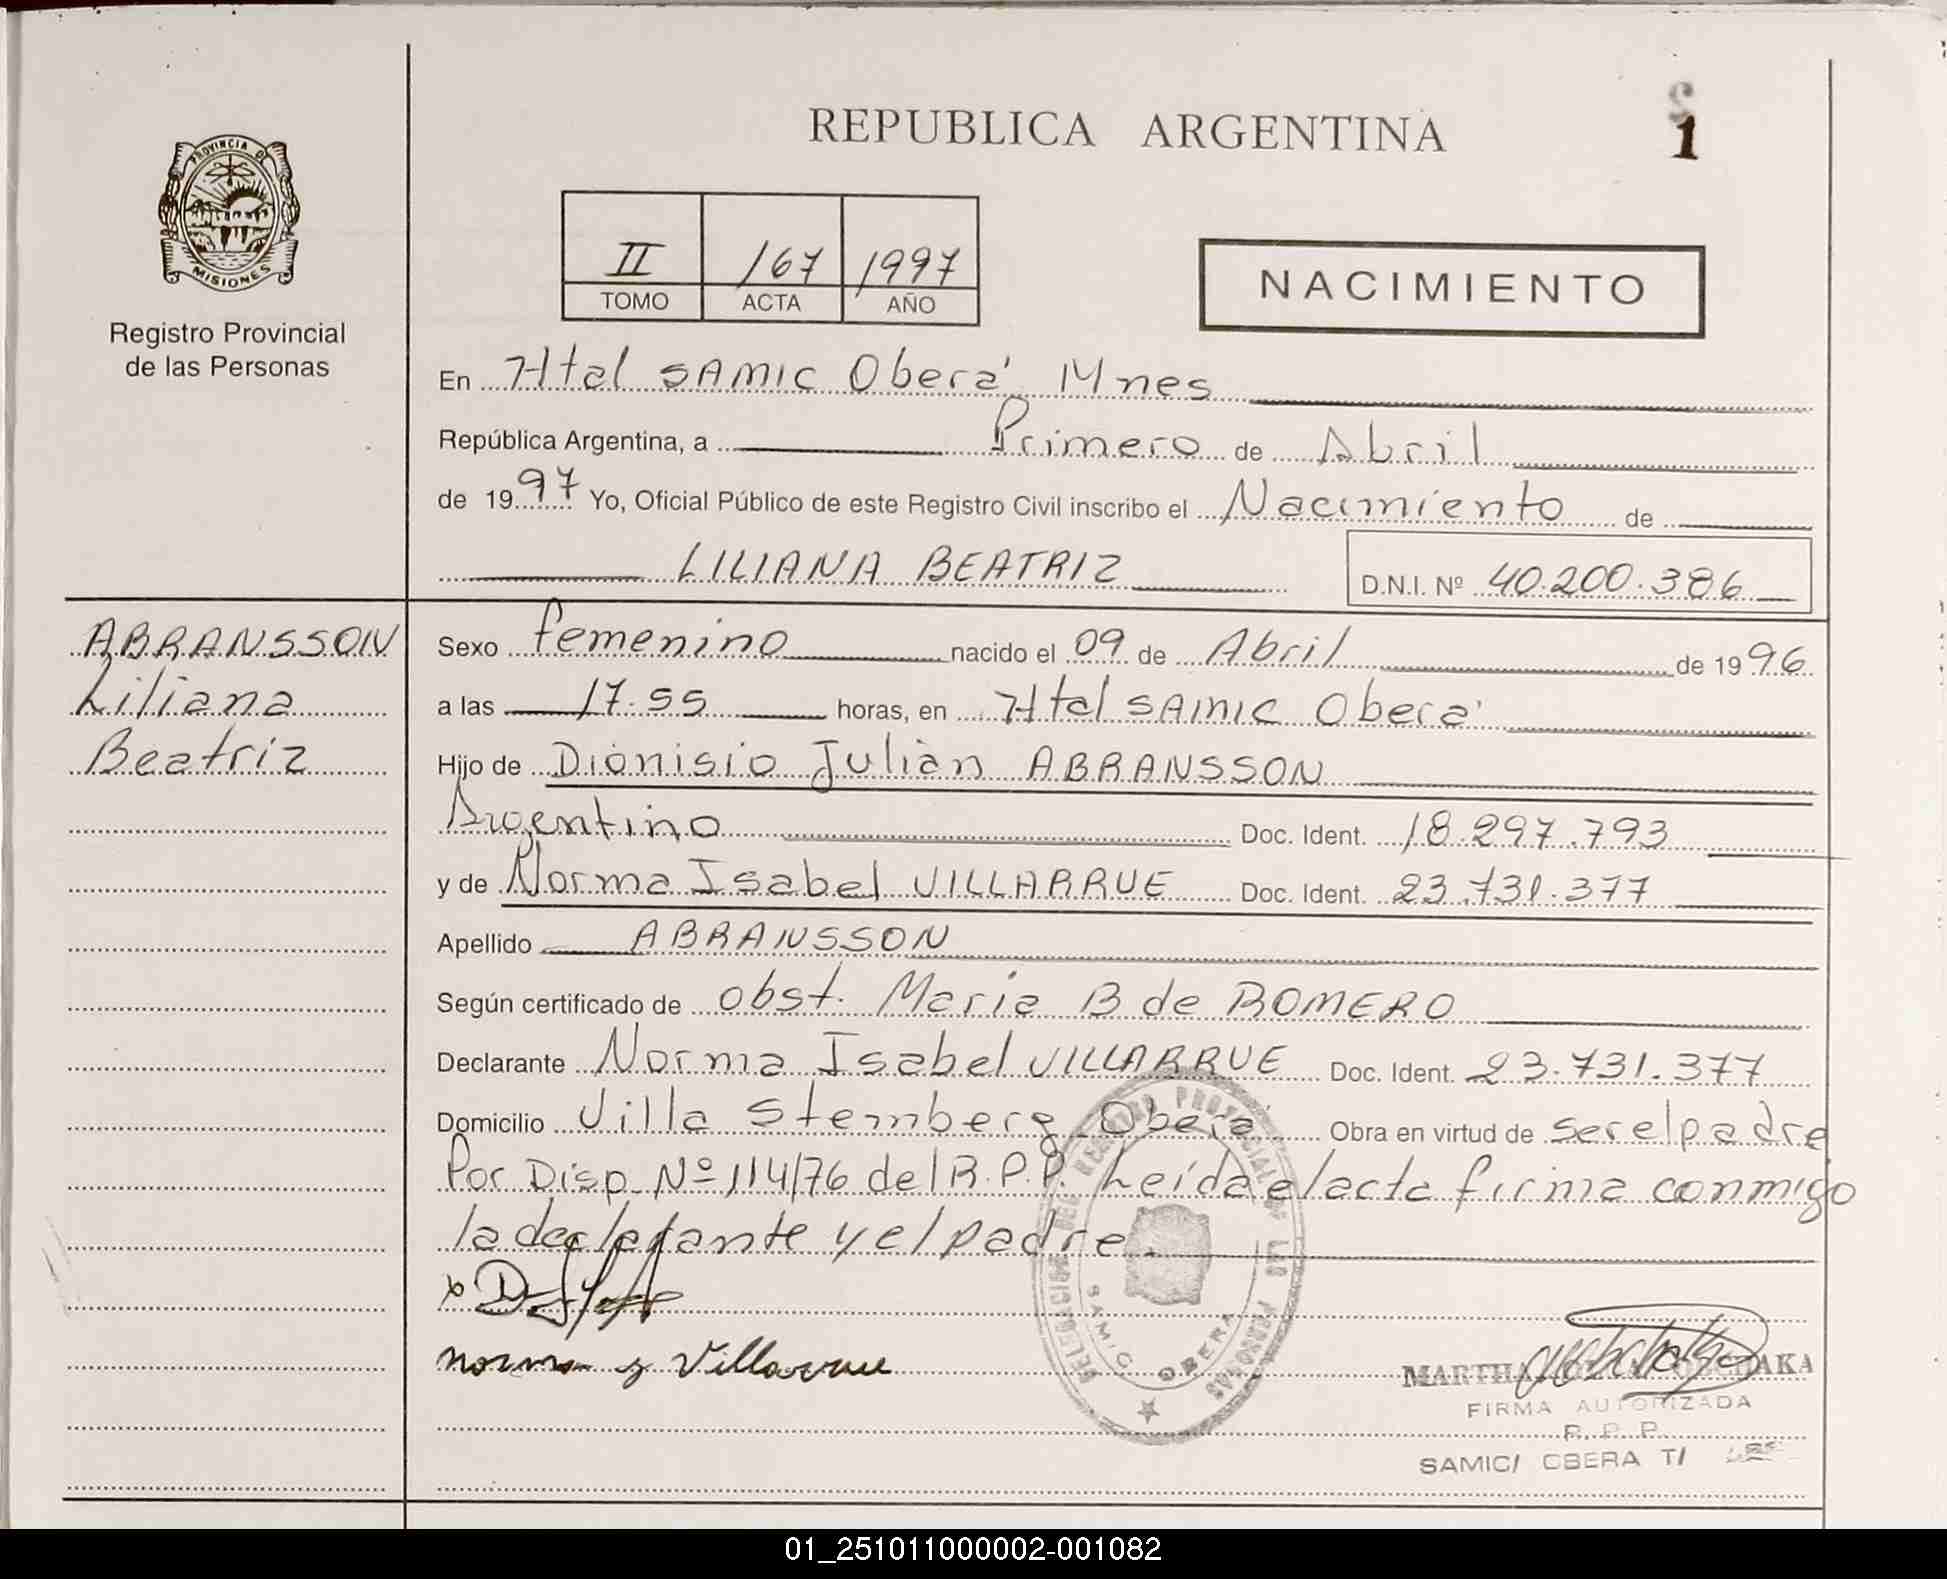 REPUBLICA ARGENTINA
1
PROVINCIA DE MISIONES
Registro Provincial
de las Personas
II 167 1997
TOMO ACTA AÑO
NACIMIENTO
En Htal SAMIC Oberá Mnes
República Argentina, a Primero de Abril
de 1997 Yo, Oficial Público de este Registro Civil inscribo el Nacimiento de
LILIANA BEATRIZ D.N.I. Nº 40.200.386
ABRANSSON
Liliana
Beatriz
Sexo femenino nacido el 09 de Abril de 1996
a las 17.55 horas, en Htal SAMIC Oberá
Hijo de Dionisio Julián ABRANSSON
Argentino Doc. Ident. 18.297.793
y de Norma Isabel VILLARRUE Doc. Ident. 23.731.377
Apellido ABRANSSON
Según certificado de obst. Maria B de ROMERO
Declarante Norma Isabel VILLARRUE Doc. Ident. 23.731.377
Domicilio Villa Stemberg Oberá Obra en virtud de ser el padre
Por Disp. Nº 114/76 del R.P.P. Leída el acta firma conmigo
la declarante y el padre.
DELEGACION DEL REGISTRO PROVINCIAL DE LAS PERSONAS
SAMIC OBERA
Norma y Villarrue
MARTHA
FIRMA AUTORIZADA
R. P. P.
SAMIC/ OBERA T/
01_251011000002-001082